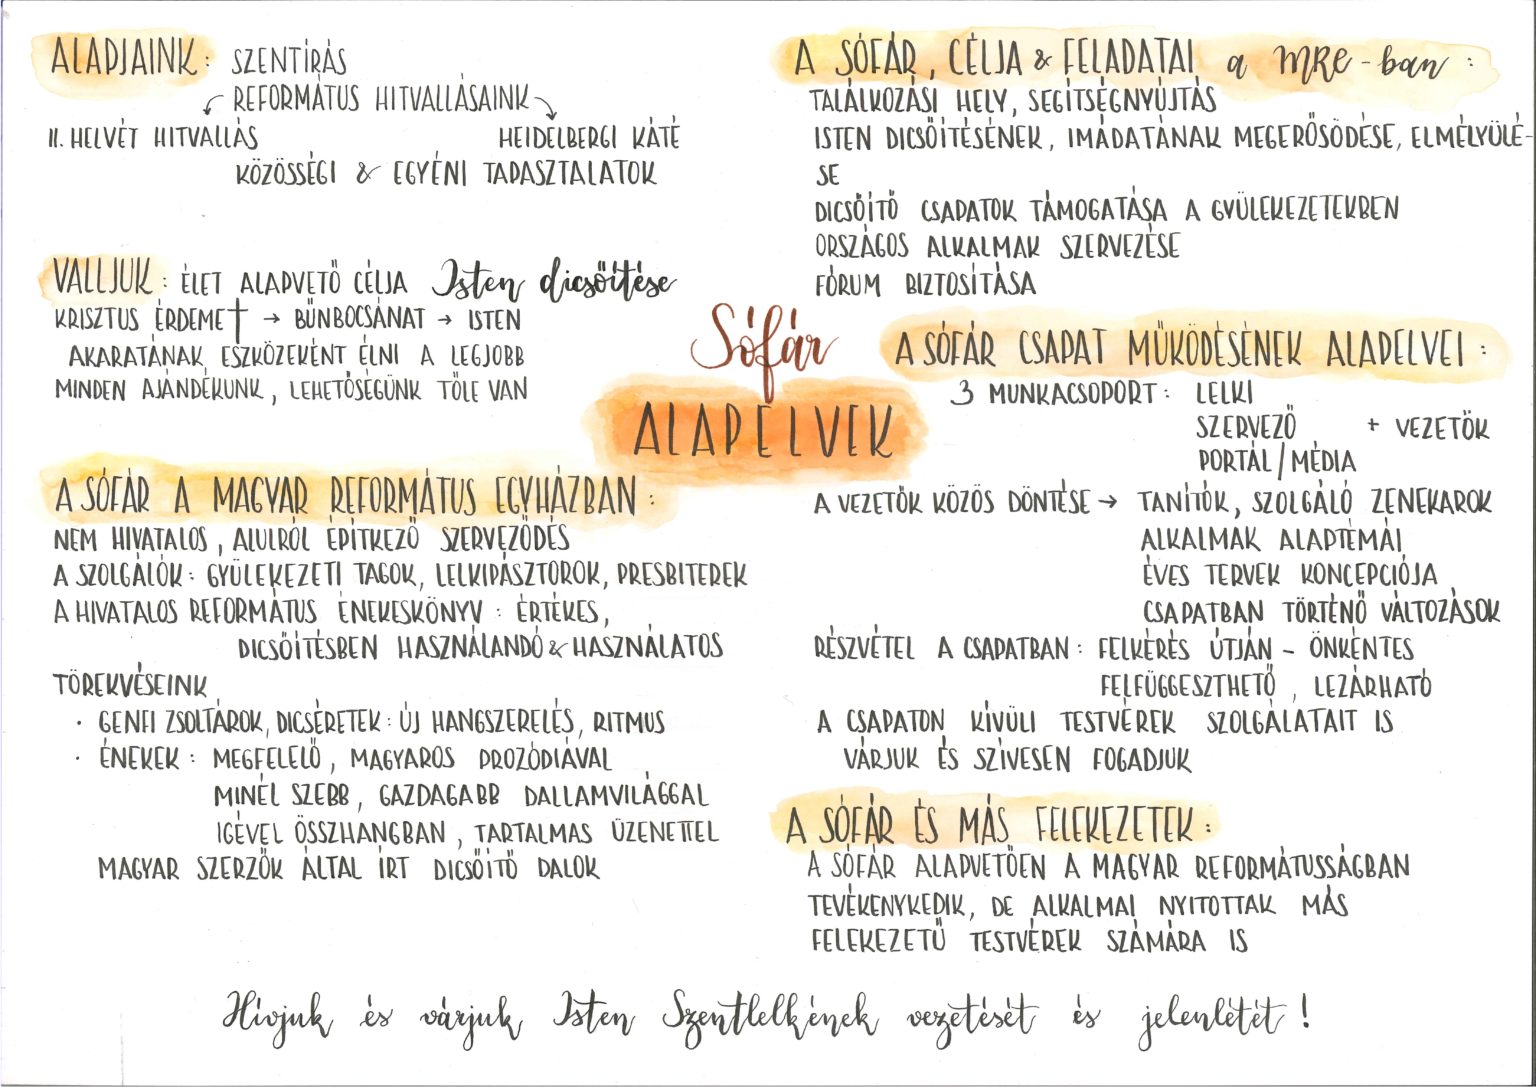 ALAPJAINK: SZENTÍRÁS
REFORMÁTUS HITVALLÁSAINK
II. HELVÉT HITVALLÁS HEIDELBERGI KÁTÉ
KÖZÖSSÉGI & EGYÉNI TAPASZTALATOK
VALLJUK: ÉLET ALAPVETŐ CÉLJA Isten dicsőítése
KRISZTUS ÉRDEME† → BŰNBOCSÁNAT → ISTEN
AKARATÁNAK ESZKÖZEKÉNT ÉLNI A LEGJOBB
MINDEN AJÁNDÉKUNK, LEHETŐSÉGÜNK TŐLE VAN
A SÓFÁR A MAGYAR REFORMÁTUS EGYHÁZBAN:
NEM HIVATALOS, ALULRÓL ÉPÍTKEZŐ SZERVEZŐDÉS
A SZOLGÁLÓK: GYÜLEKEZETI TAGOK, LELKIPÁSZTOROK, PRESBITEREK
A HIVATALOS REFORMÁTUS ÉNEKESKÖNYV: ÉRTÉKES,
DICSŐÍTÉSBEN HASZNÁLANDÓ & HASZNÁLATOS
TÖREKVÉSEINK
· GENFI ZSOLTÁROK, DICSÉRETEK: ÚJ HANGSZERELÉS, RITMUS
· ÉNEKEK: MEGFELELŐ, MAGYAROS PROZÓDIÁVAL
MINÉL SZEBB, GAZDAGABB DALLAMVILÁGGAL
IGÉVEL ÖSSZHANGBAN, TARTALMAS ÜZENETTEL
MAGYAR SZERZŐK ÁLTAL ÍRT DICSŐÍTŐ DALOK
Sófár
ALAPELVEK
A SÓFÁR, CÉLJA & FELADATAI a MRE-ban:
TALÁLKOZÁSI HELY, SEGÍTSÉGNYÚJTÁS
ISTEN DICSŐÍTÉSÉNEK, IMÁDATÁNAK MEGERŐSÖDÉSE, ELMÉLYÜLÉ-
SE
DICSŐÍTŐ CSAPATOK TÁMOGATÁSA A GYÜLEKEZETEKBEN
ORSZÁGOS ALKALMAK SZERVEZÉSE
FÓRUM BIZTOSÍTÁSA
A SÓFÁR CSAPAT MŰKÖDÉSÉNEK ALAPELVEI:
3 MUNKACSOPORT: LELKI
SZERVEZŐ + VEZETŐK
PORTÁL/MÉDIA
A VEZETŐK KÖZÖS DÖNTÉSE → TANÍTÓK, SZOLGÁLÓ ZENEKAROK
ALKALMAK ALAPTÉMÁI
ÉVES TERVEK KONCEPCIÓJA
CSAPATBAN TÖRTÉNŐ VÁLTOZÁSOK
RÉSZVÉTEL A CSAPATBAN: FELKÉRÉS ÚTJÁN - ÖNKÉNTES
FELFÜGGESZTHETŐ, LEZÁRHATÓ
A CSAPATON KÍVÜLI TESTVÉREK SZOLGÁLATAIT IS
VÁRJUK ÉS SZÍVESEN FOGADJUK
A SÓFÁR ÉS MÁS FELEKEZETEK:
A SÓFÁR ALAPVETŐEN A MAGYAR REFORMÁTUSSÁGBAN
TEVÉKENYKEDIK, DE ALKALMAI NYITOTTAK MÁS
FELEKEZETŰ TESTVÉREK SZÁMÁRA IS
Hívjuk és várjuk Isten Szentlelkének vezetését és jelenlétét!